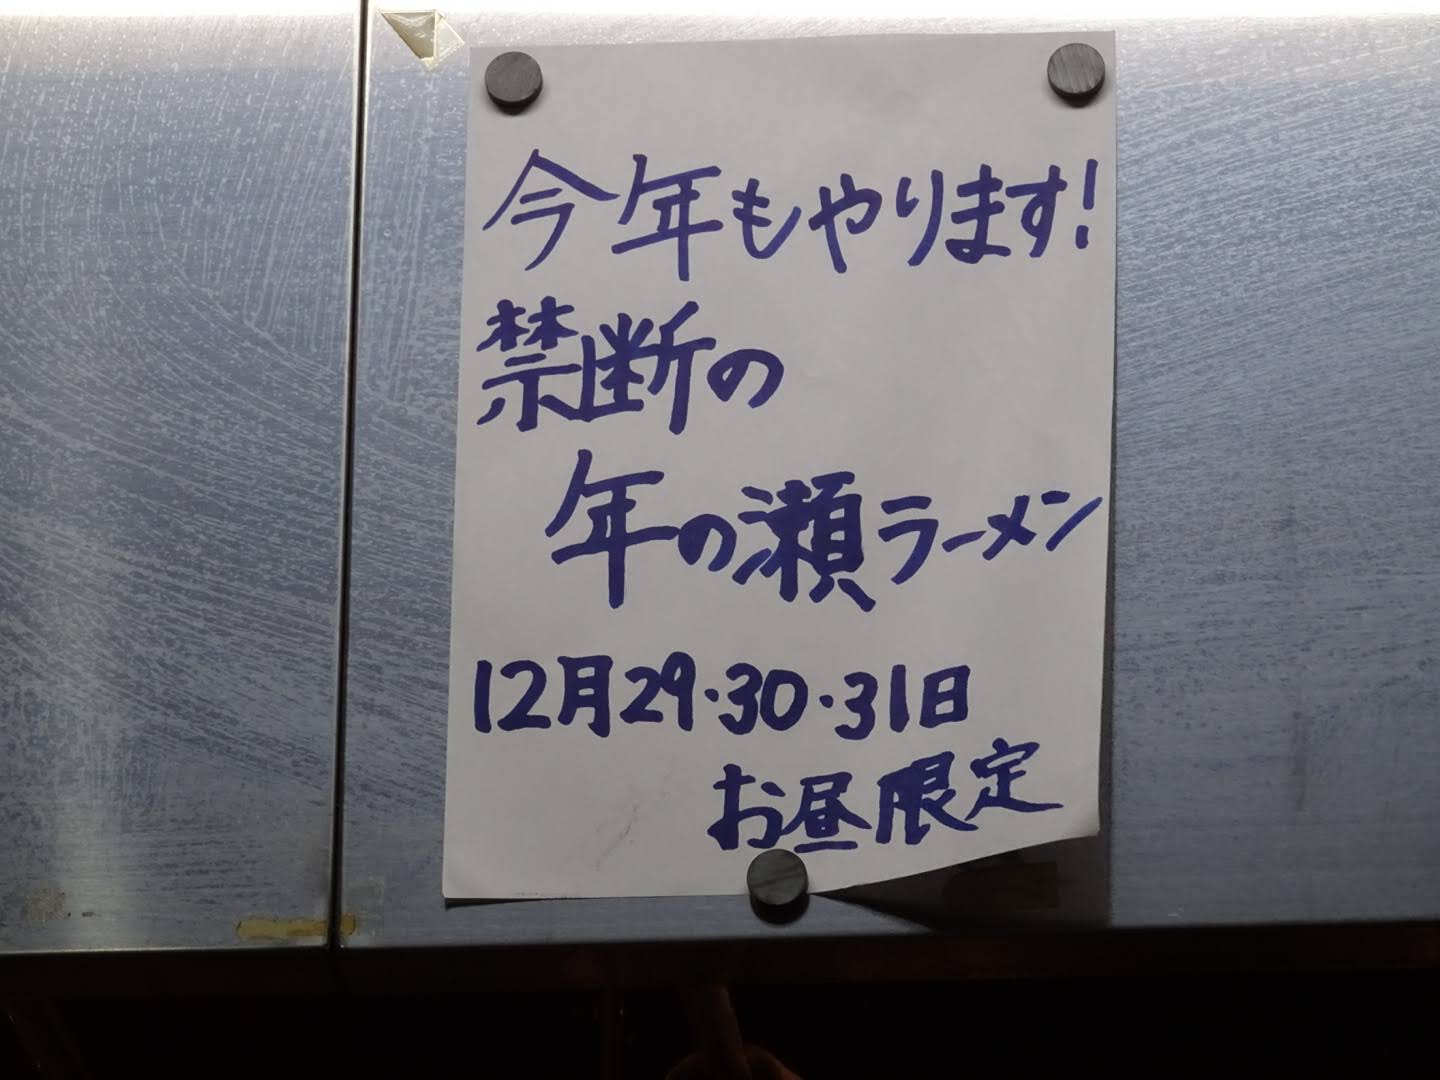 今年もやります!
禁断の
年の瀬ラーメン
12月29・30・31日
お昼限定